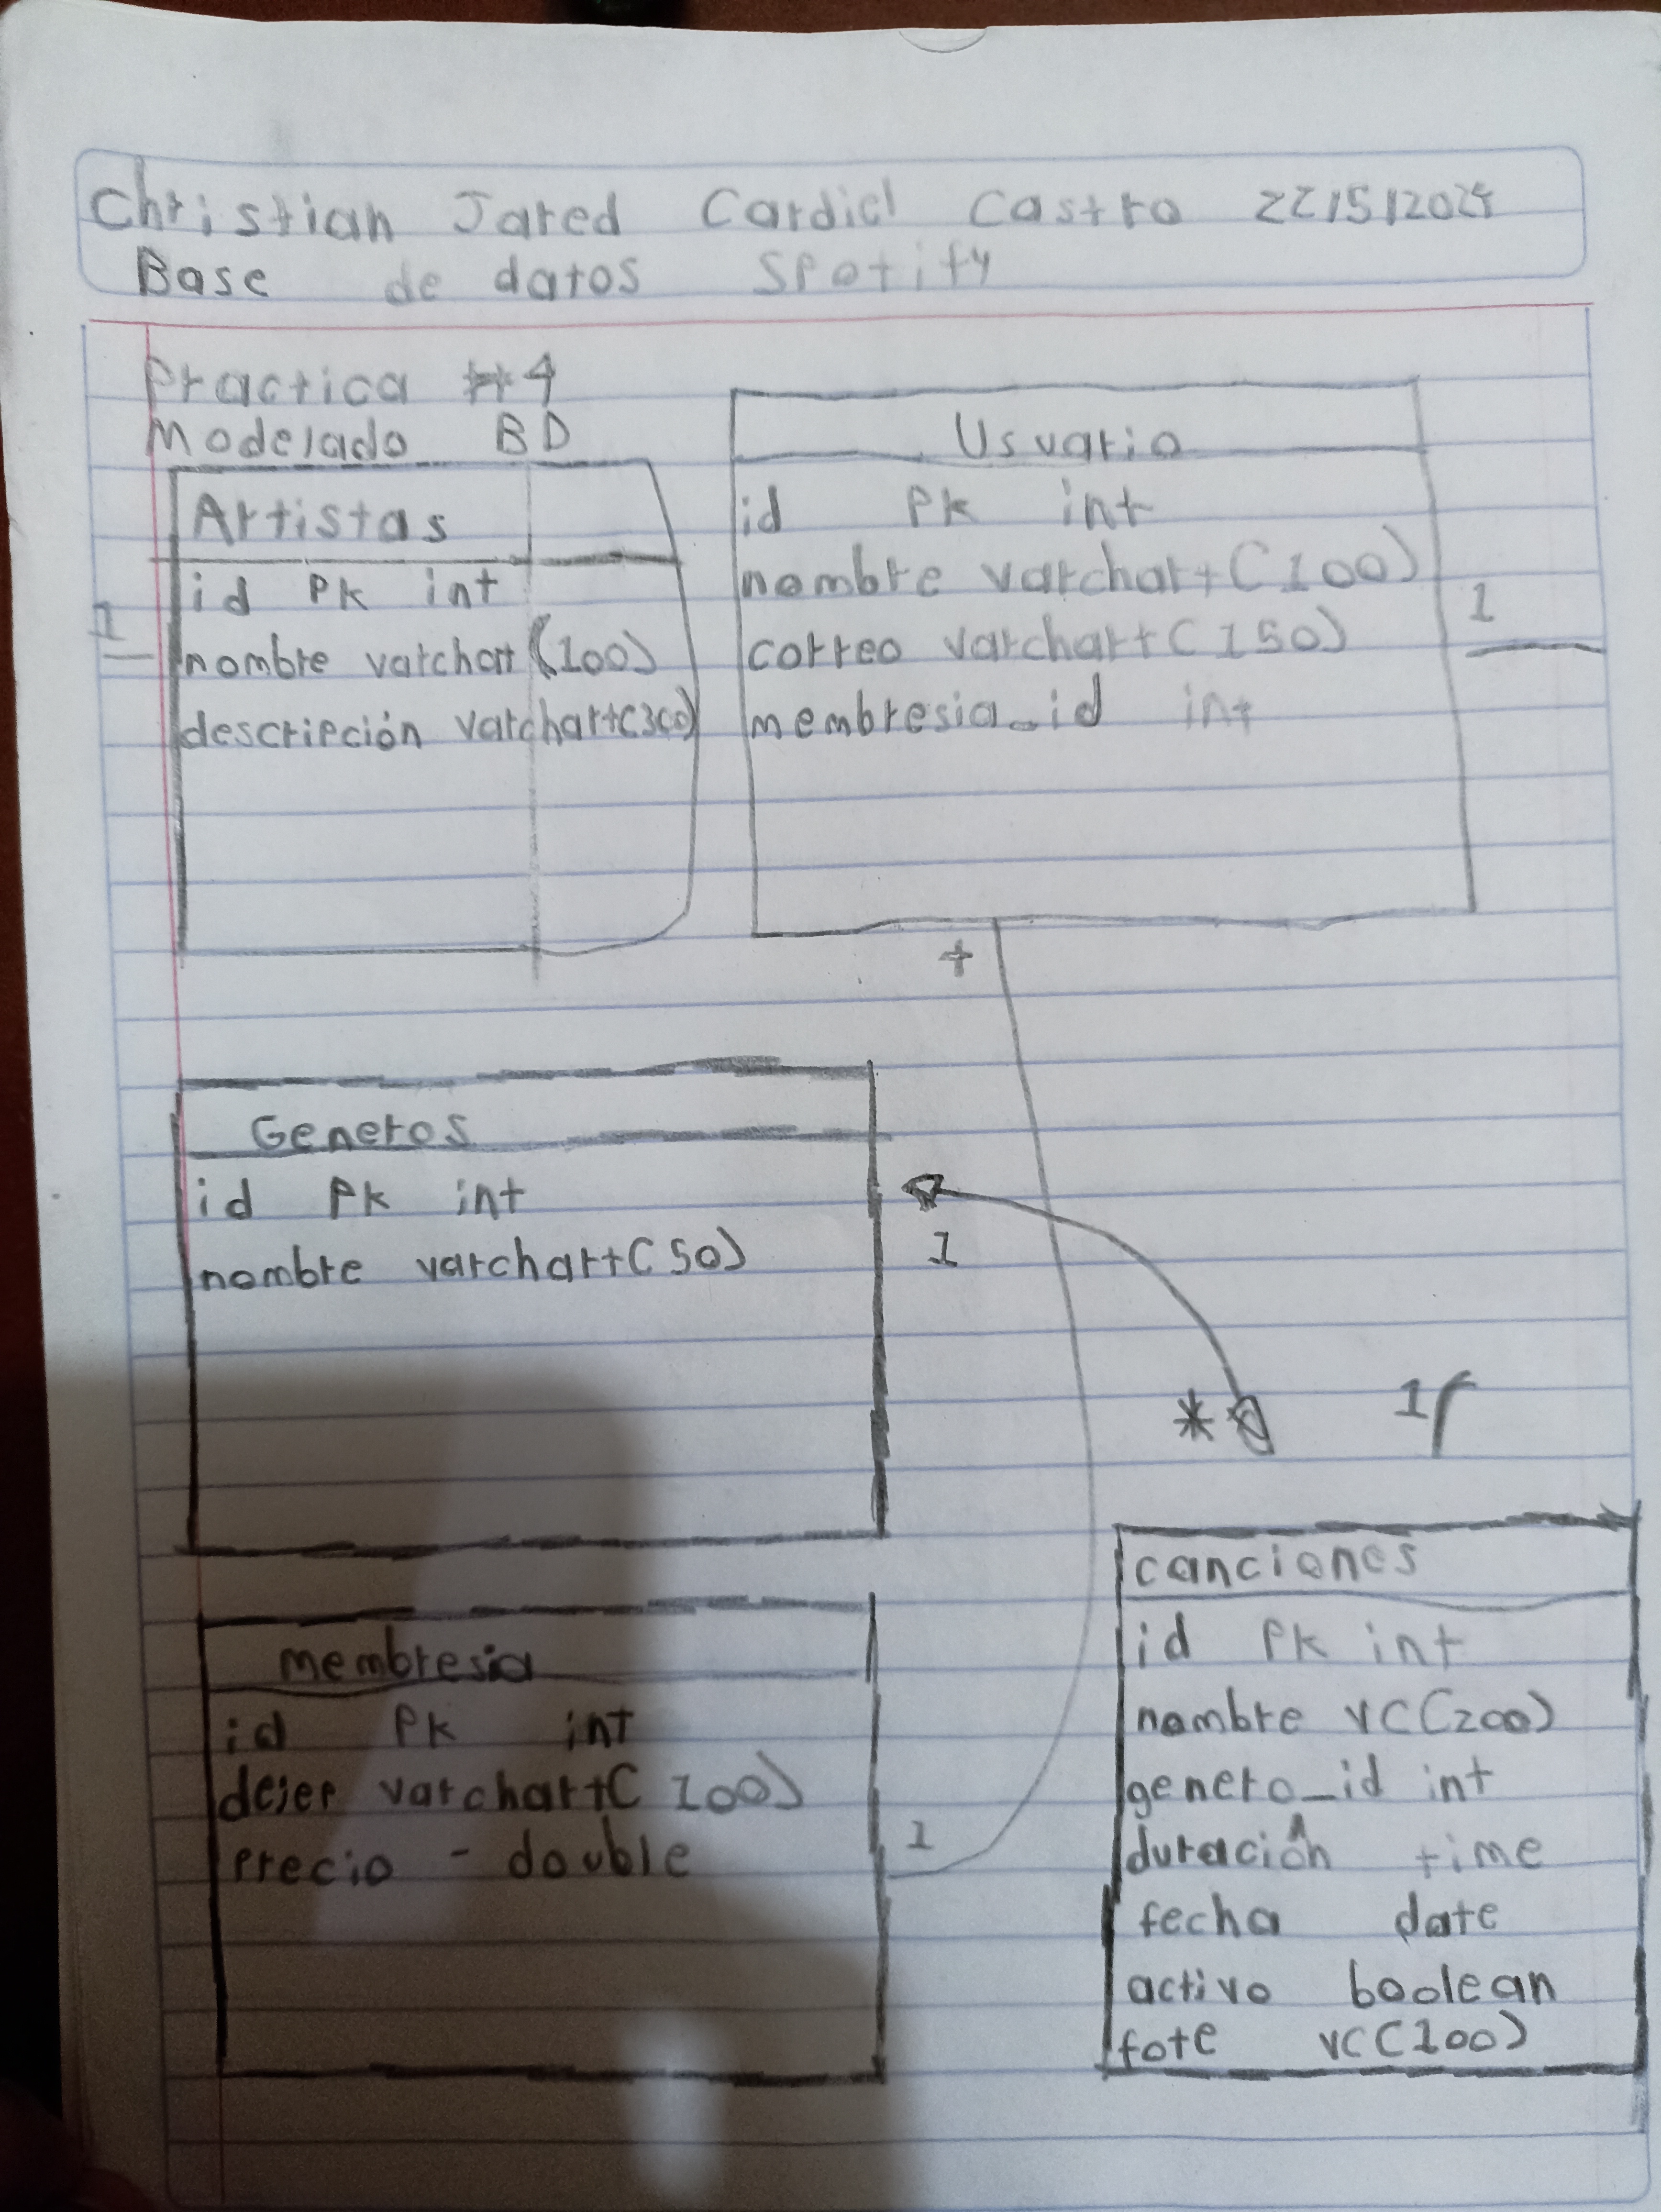 Christian Jared Cardiel Castro 22/5/2025
Base de datos Spotify
Practica #4
Modelado BD
Artistas
id Pk int
nombre varchart (100)
descripción varchart(300)
1
Usuario
id Pk int
nombre varchart (100)
correo varchart (150)
membresia_id int
1
+
Generos
id Pk int
nombre varchart (50)
1
* 1
membresia
id Pk int
varchart (100)
precio - double
1
canciones
id Pk int
nombre VC(200)
genero_id int
duración time
fecha date
activo boolean
fote VC(100)